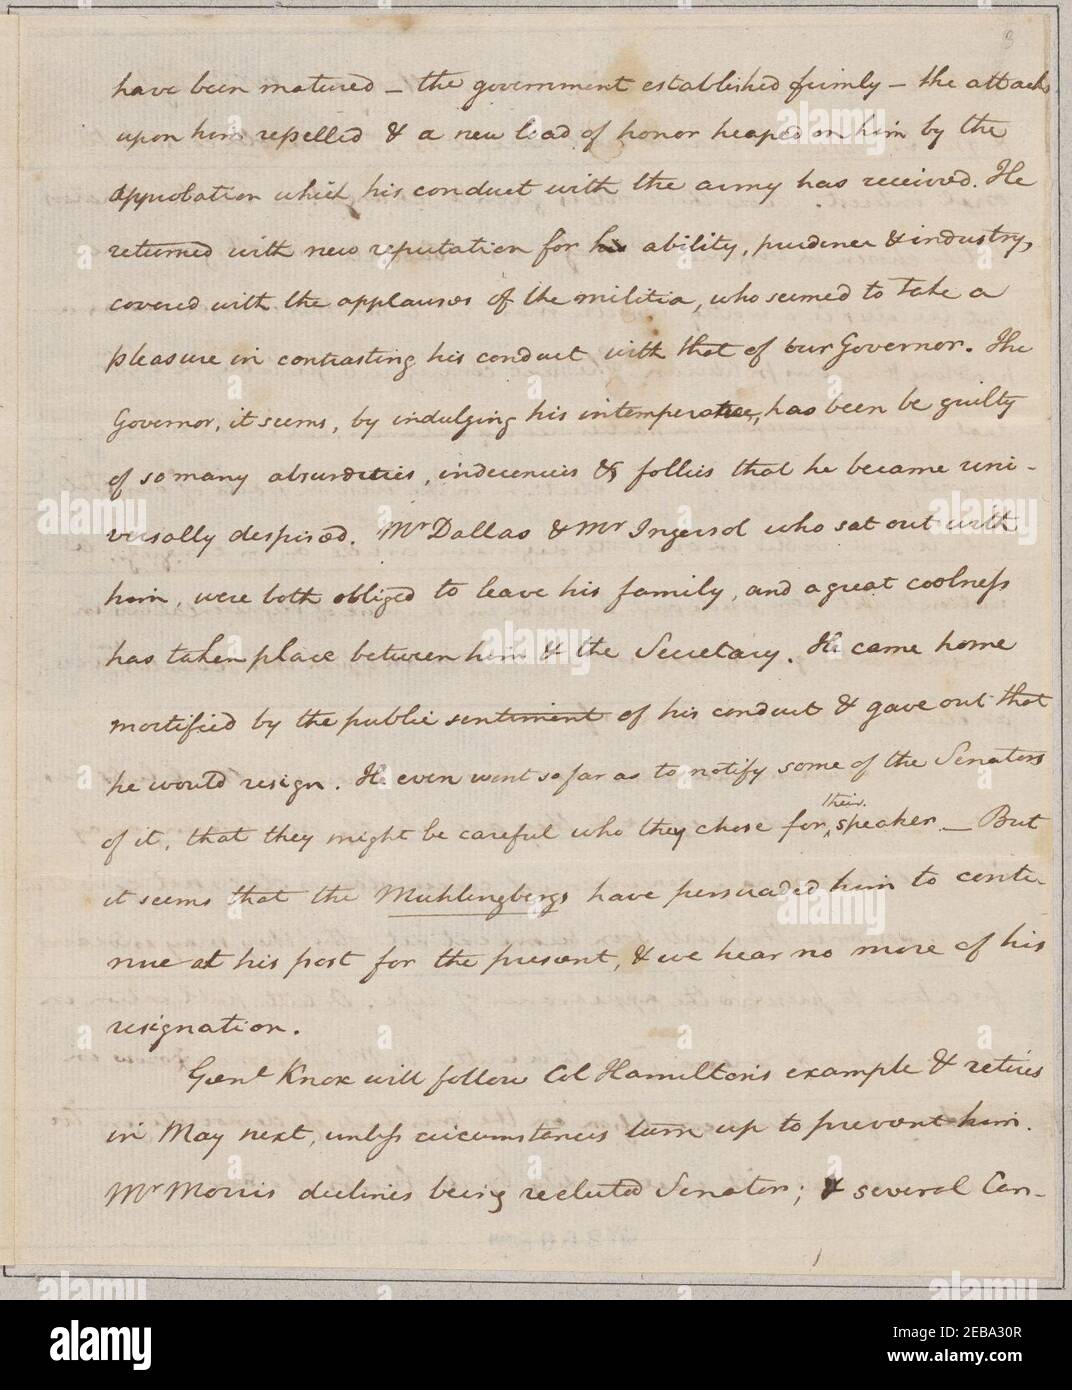 3
have been matured – the government established firmly – the attacks
upon him repelled & a new load of honor heaped on him by the
approbation which his conduct with the army has received. He
returned with new reputation for his ability, prudence & industry,
covered with the applauses of the militia, who seemed to take a
pleasure in contrasting his conduct with that of our Governor. The
Governor, it seems, by indulging his intemperance, has been be guilty
of so many absurdities, indecencies & follies that he became uni-
versally despised. Mr Dallas & Mr Ingersol who sat out with
him, were both obliged to leave his family, and a great coolness
has taken place between him & the Secretary. He came home
mortified by the public sentiment of his conduct & gave out that
he would resign. He even went so far as to notify some of the Senators
of it, that they might be careful who they chose for their speaker. – But
it seems that the Muhlingbergs have persuaded him to conti-
nue at his post for the present, & we hear no more of his
resignation.
Genl Knox will follow Col Hamilton's example & retires
in May next, unless circumstances turn up to prevent him.
Mr Morris declines being reelected Senator; & several Can-
alamy
Image ID: 2EBA30R
www.alamy.com